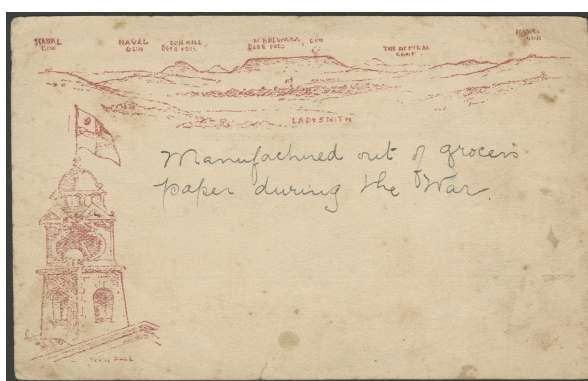 NAVAL
GUN
NAVAL
GUN
GUN HILL
GUN
THE NEUTRAL
CAMP
NAVAL
GUN
LADYSMITH
Manufactured out of grocer's
paper during the War.
TOWN HALL